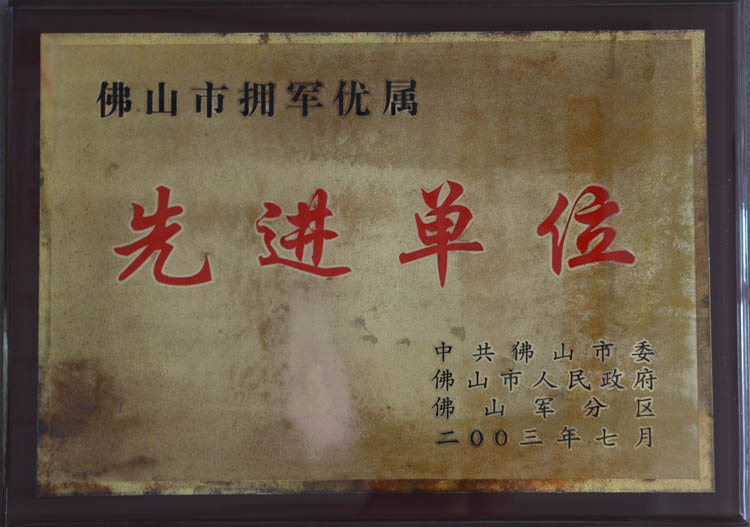 佛山市拥军优属
先进单位
中共佛山市委
佛山市人民政府
佛山军分区
二00三年七月